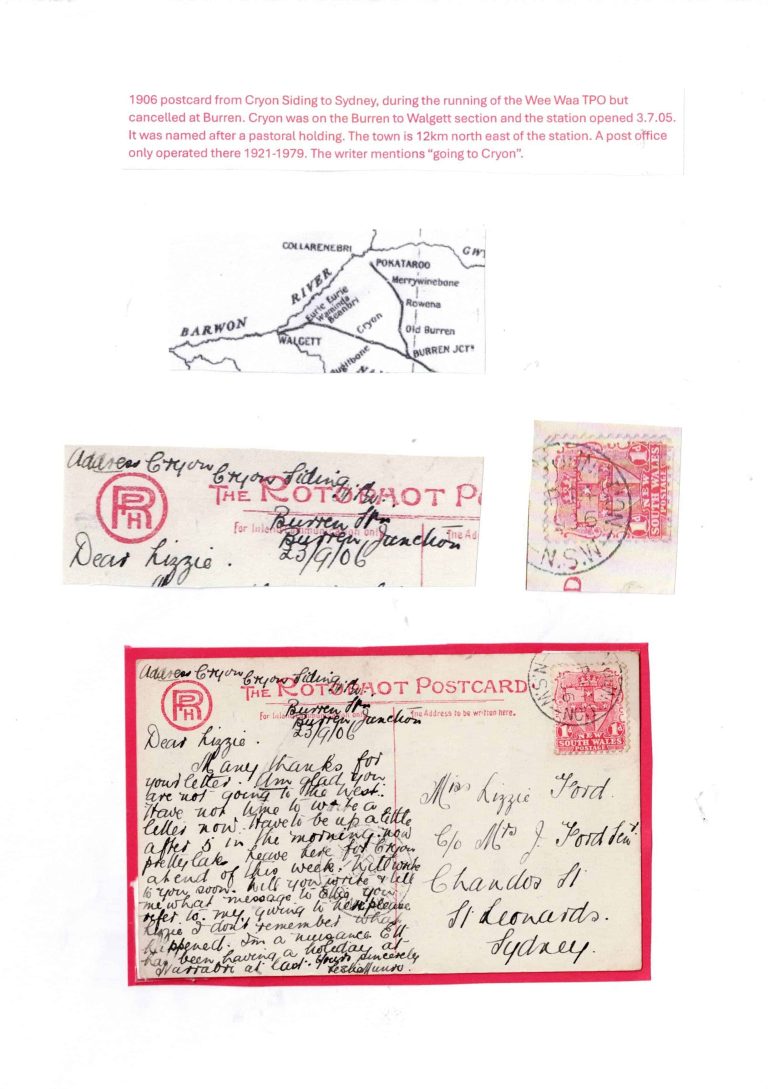 1906 postcard from Cryon Siding to Sydney, during the running of the Wee Waa TPO but
cancelled at Burren. Cryon was on the Burren to Walgett section and the station opened 3.7.05.
It was named after a pastoral holding. The town is 12km north east of the station. A post office
only operated there 1921-1979. The writer mentions “going to Cryon”.
COLLARENEBRI
GW
POKATAROO
Merrywinebone
RIVER
Rowena
Eurie Eurie
Waminda
Beanbri
BARWON
Cryon
Old Burren
WALGETT
BURREN JCTN
Address Cryon Cryon Siding
PRH
THE ROTOPHOT PO
Burren Stn
For Inland Communication only
The Ad
Burren Junction
Dear Lizzie.
23/9/06
1D 1D
NEW
SOUTH WALES
POSTAGE
N.S.W.
D
Address Cryon Cryon Siding
PRH
THE ROTOPHOT POSTCARD
Burren Stn
For Inland Communication only
The Address to be written here.
Burren Junction
23/9/06
1D 1D
NEW
SOUTH WALES
POSTAGE
N.S.W
Dear Lizzie.
Many thanks for
your letter. Am glad you
are not going to the West.
Have not time to write a
letter now. Have to be up a little
after 5 in the morning now
pretty late. Leave here for Cryon
ahead of this week. Will write
to you soon. Will you write & tell
me what message to Ettie you
refer to my giving to her please
Lizzie I don't remember what
happened. I'm a nuisance Ett
has been having a holiday at
Narrabri at last. Yours sincerely
Leslie Munro.
Miss Lizzie Ford.
C/o Mrs J. Ford Senr
Chandos St
St Leonards.
Sydney.